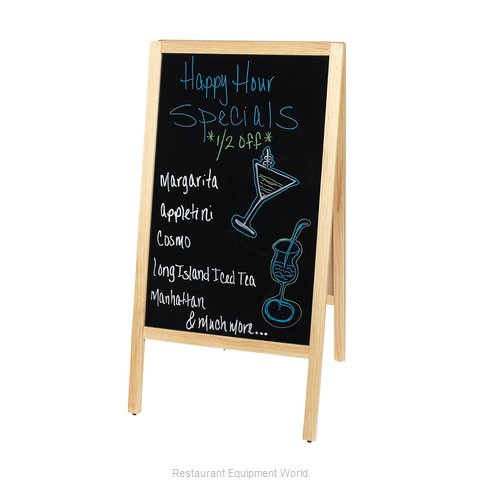 Happy Hour
Specials
*1/2 off*
Margarita
Appletini
Cosmo
Long Island Iced Tea
Manhattan
& Much More...
Restaurant Equipment World